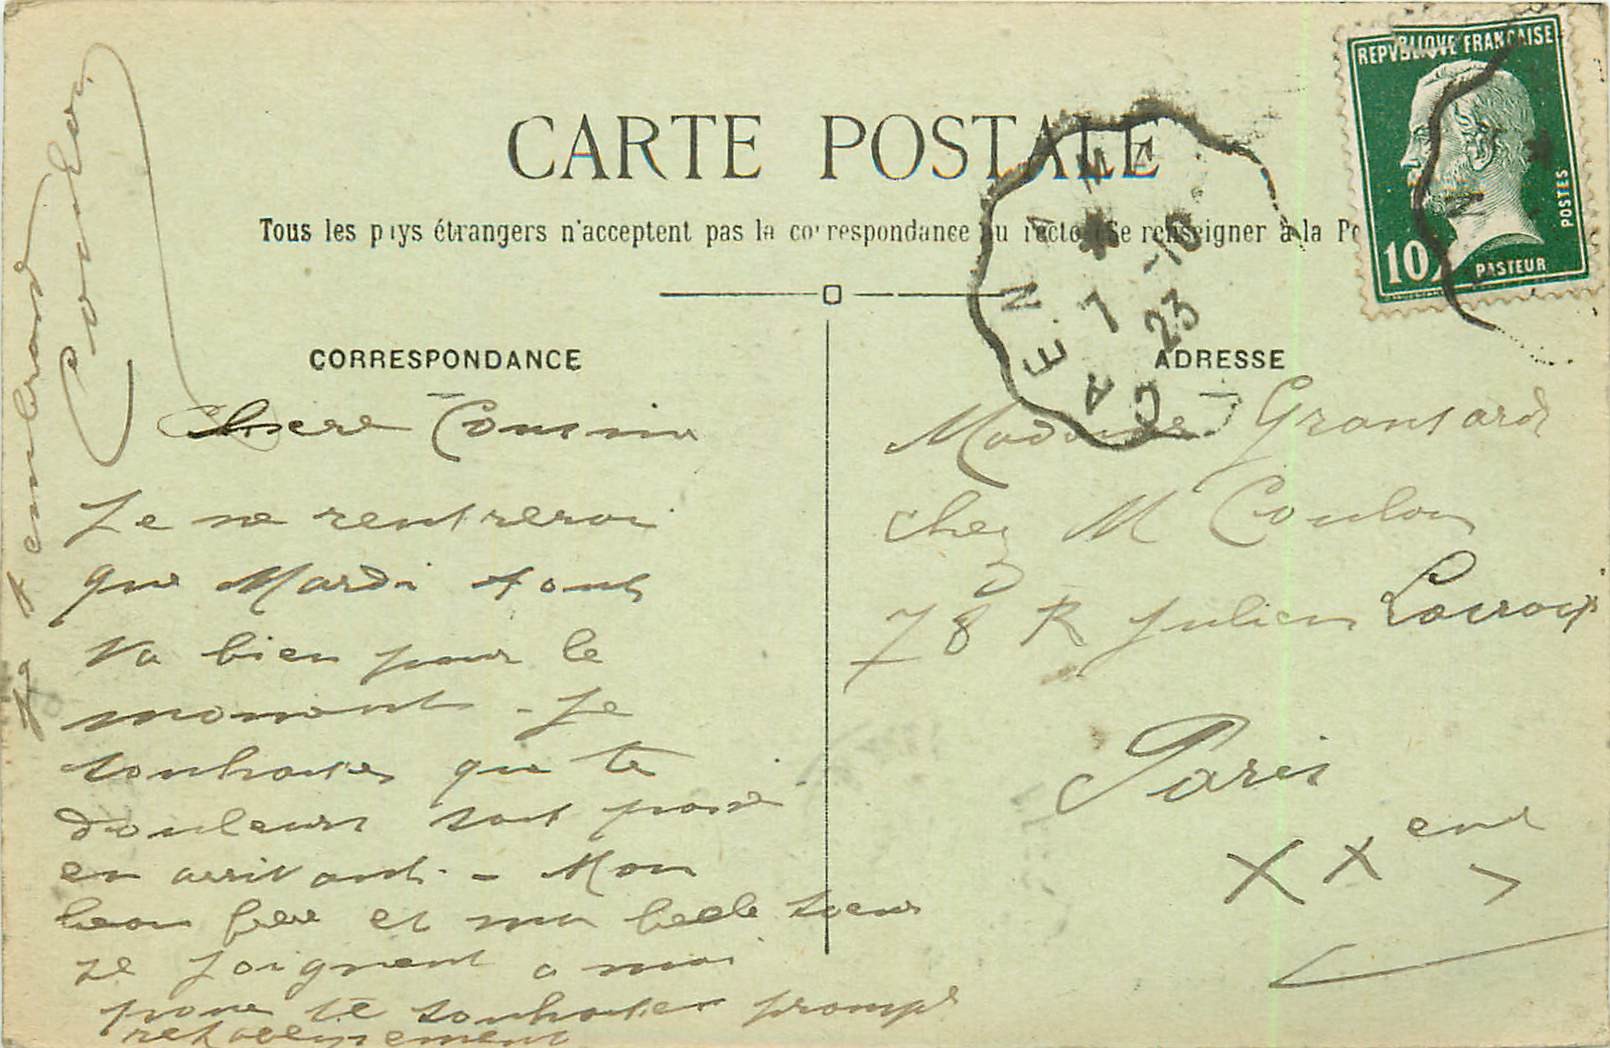 CARTE POSTALE
Tous les pays étrangers n'acceptent pas la correspondance au recto (Se renseigner à la Po
REPVBLIQVE FRANÇAISE
POSTES
10c
PASTEUR
CAEN
7 -10
23
CORRESPONDANCE
ADRESSE
Chere Cousine
Je ne rentrerai
que Mardi tout
va bien pour le
moment - Je
souhaites que te
douleurs soit passé
en arrivant. - Mon
beau frere et ma belle soeur
se joignent a moi
pour te souhaiter prompt
retablissement
Je t embrasse
Coulon
Madame Gransard
chez M Coulon
78 R Julien Lacroix
Paris
XX eme